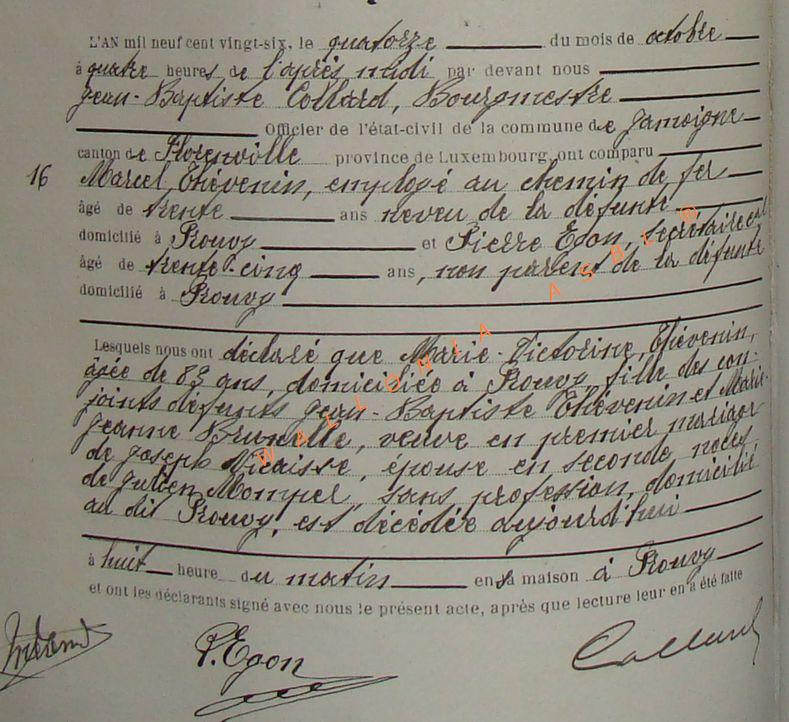 L'AN mil neuf cent vingt-six, le quatorze du mois de octobre
à quatre heures de l'après midi par devant nous
Jean-Baptiste Collard, Bourgmestre
Officier de l'état-civil de la commune de Jamoigne
canton de Florenville province de Luxembourg, ont comparu
16 Marcel Thévenin, employé au chemin de fer
âgé de trente ans neveu de la défunte
domicilié à Prouvy et Pierre Egon, secrétaire cal
âgé de trente-cinq ans, non parent de la défunte
domicilié à Prouvy
WALLONIA ASBL ©
Lesquels nous ont déclaré que Marie-Victorine, Thévenin,
âgée de 83 ans, domiciliée à Prouvy, fille des con-
joints défunts Jean-Baptiste Thévenin et Marie-
Jeanne Brunelle, veuve en premier mariage
de Joseph Nicaisse, épouse en seconde noces,
de Julien Momper, sans profession, domicilié
au dit Prouvy, est décédée aujourd'hui
à huit heure du matin en sa maison à Prouvy
et ont les déclarants signé avec nous le présent acte, après que lecture leur en a été faite
P. Egon Collard